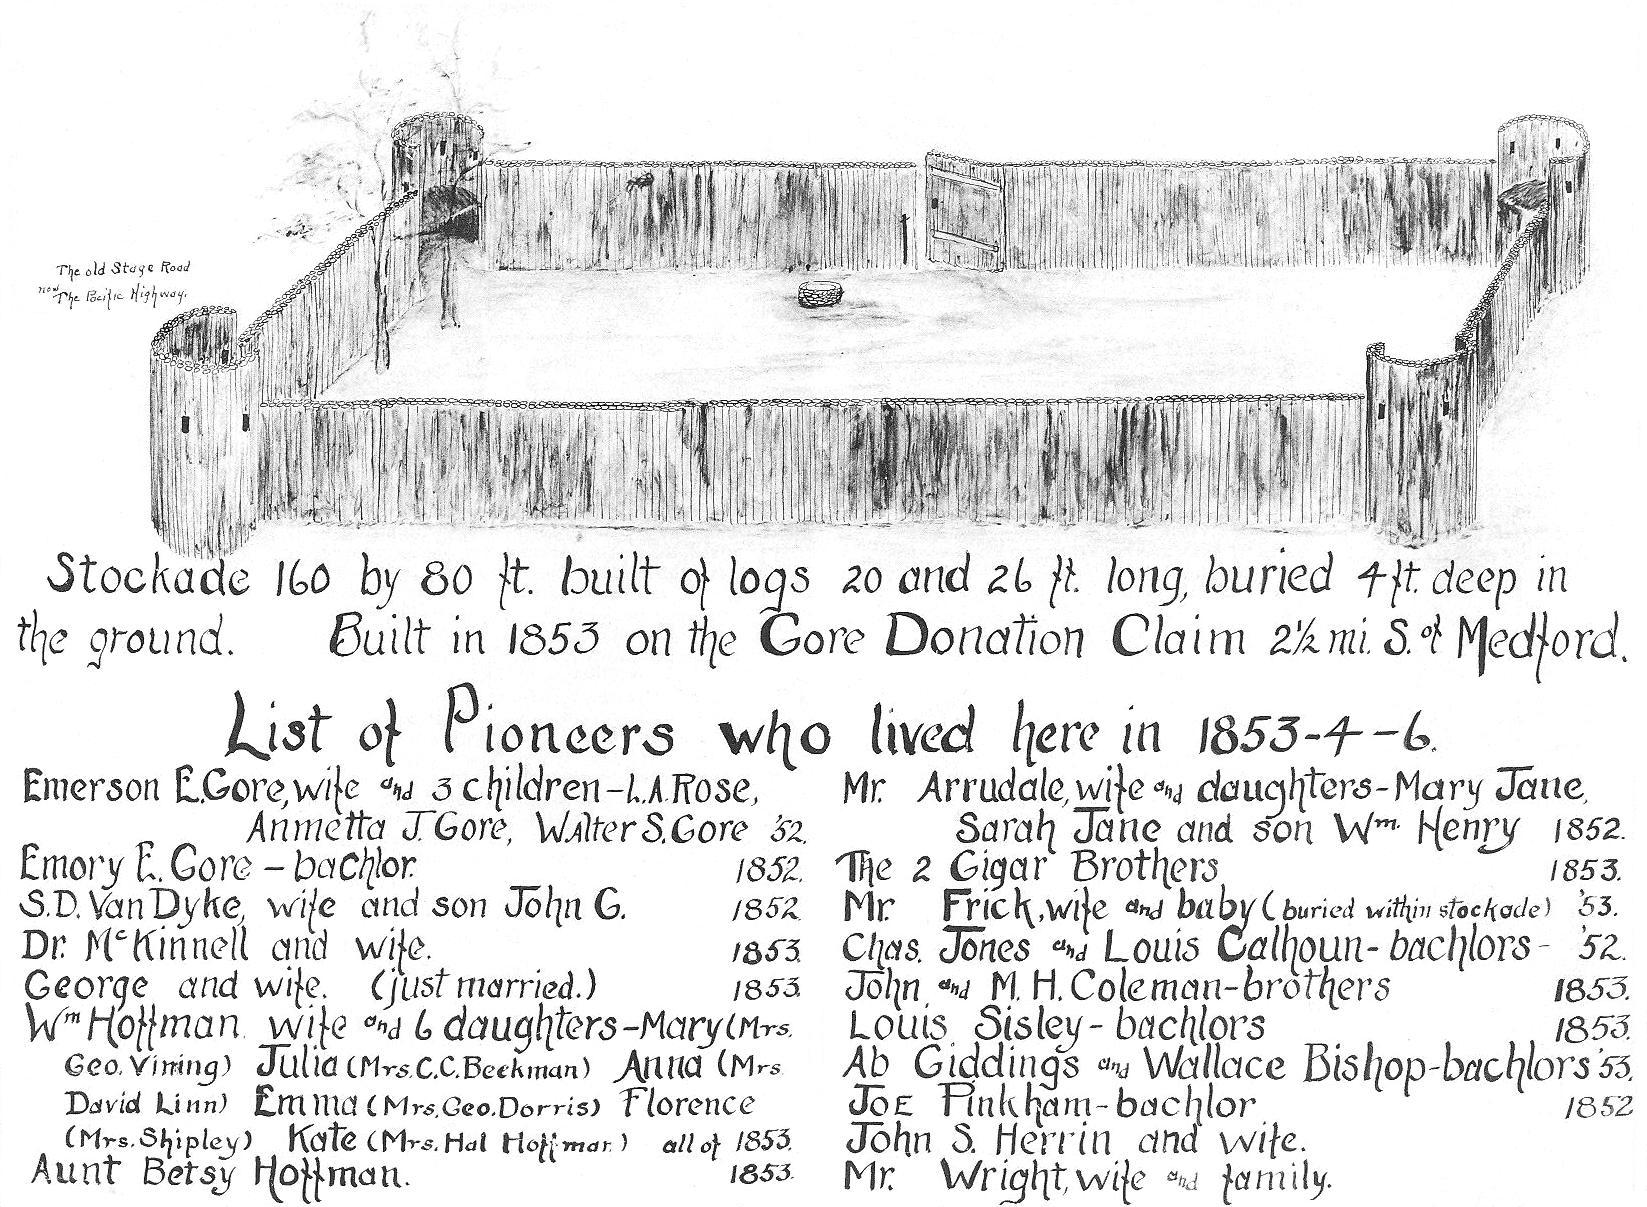 The old Stage Road
now The Pacific Highway.
Stockade 160 by 80 ft. built of logs 20 and 26 ft. long, buried 4 ft. deep in
the ground. Built in 1853 on the Gore Donation Claim 2½ mi. S. of Medford.
List of Pioneers who lived here in 1853-4-6.
Emerson E. Gore, wife and 3 children - L.A. Rose,
Anmetta J. Gore, Walter S. Gore '52.
Emory E. Gore - bachlor. 1852.
S.D. Van Dyke, wife and son John G. 1852
Dr. McKinnell and wife. 1853.
George and wife. (just married.) 1853.
Wm Hoffman wife and 6 daughters - Mary (Mrs.
Geo. Vining) Julia (Mrs. C.C. Beekman) Anna (Mrs
David Linn) Emma (Mrs. Geo. Dorris) Florence
(Mrs. Shipley) Kate (Mrs. Hal Hoffman) all of 1853.
Aunt Betsy Hoffman. 1853.
Mr. Arrudale, wife and daughters - Mary Jane,
Sarah Jane and son Wm. Henry 1852.
The 2 Gigar Brothers 1853.
Mr. Frick, wife and baby (buried within stockade) '53.
Chas. Jones and Louis Calhoun - bachlors - '52.
John and M. H. Coleman - brothers 1853.
Louis Sisley - bachlors 1853.
Ab Giddings and Wallace Bishop - bachlors '53.
Joe Pinkham - bachlor 1852
John S. Herrin and wife.
Mr. Wright, wife and family.